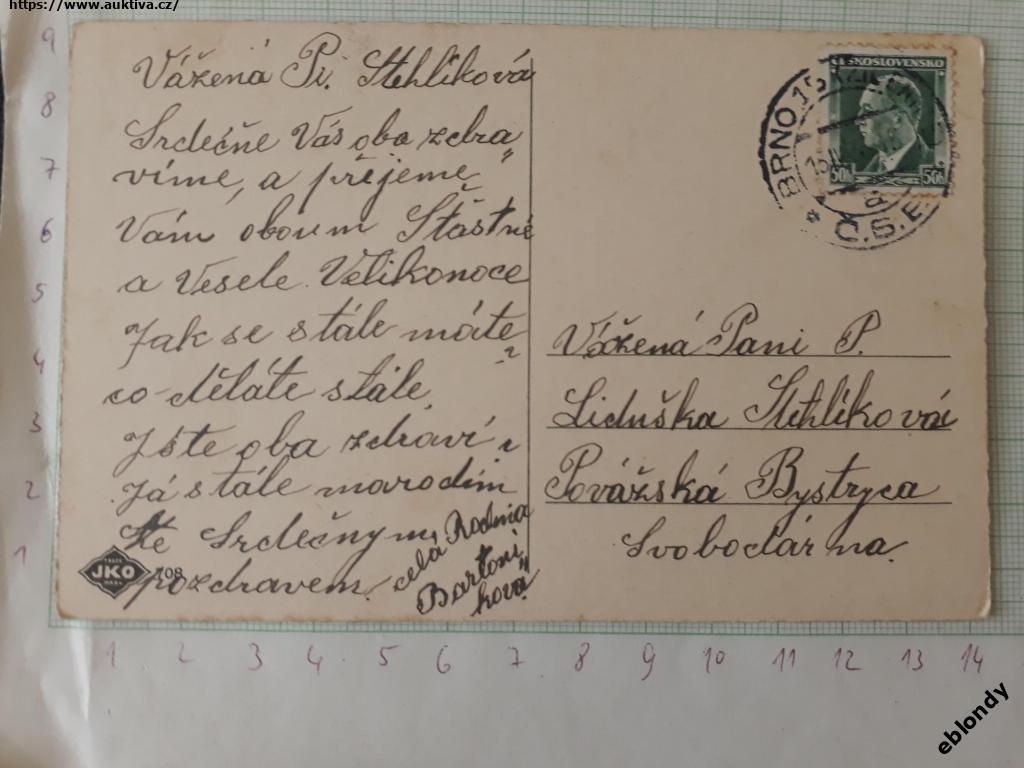 https://www.auktiva.cz/
Vážená Pí. Stehlíková
Srdečne Vás oba zdra„
víme, a přejeme
Vám oboum Štăstné
a Vesele Velikonoce
Jak se stále máte
co-děláte stále ?
Jste oba zdraví ?
Já stále marodím
Se Srdečnym
pozdravem. celá Rodnia
Bartoni„
kova
JKO
108
ČESKOSLOVENSKO
50h 50h
BRNO 15
Č.S.R.
Vážená Pani P.
Liduška Stehlíková
Považská Bystryca
Svobodárna
9
8
7
6
5
4
3
2
1
1 2 3 4 5 6 7 8 9 10 11 12 13 14
eblondy